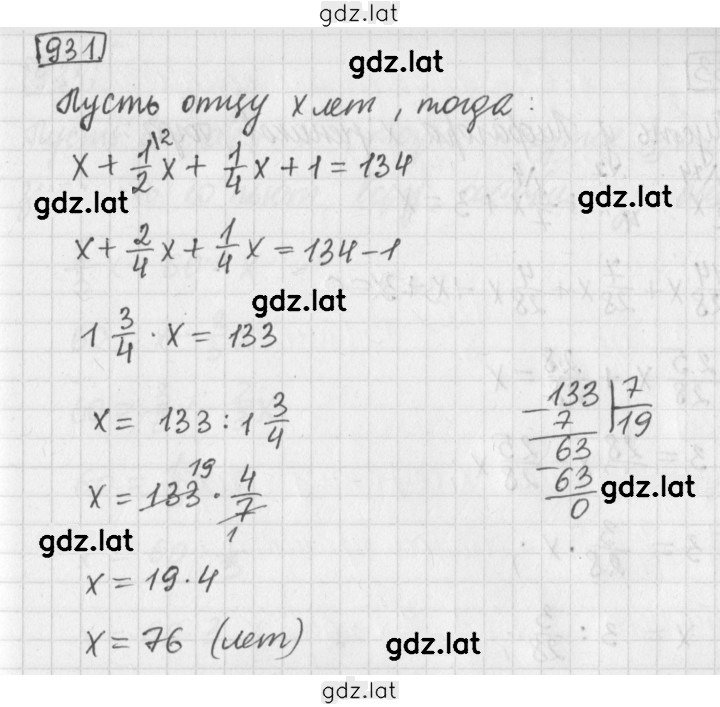 gdz.lat
931.
gdz.lat
Пусть отцу x лет, тогда:
x + 1/2\2 x + 1/4 x + 1 = 134
gdz.lat gdz.lat
x + 2/4 x + 1/4 x = 134 - 1
gdz.lat
1 3/4 · x = 133
x = 133 : 1 3/4
133 | 7
- 7 | 19
63
- 63
0
gdz.lat
19
x = 133 · 4/7
1
gdz.lat
x = 19 · 4
x = 76 (лет)
gdz.lat
gdz.lat